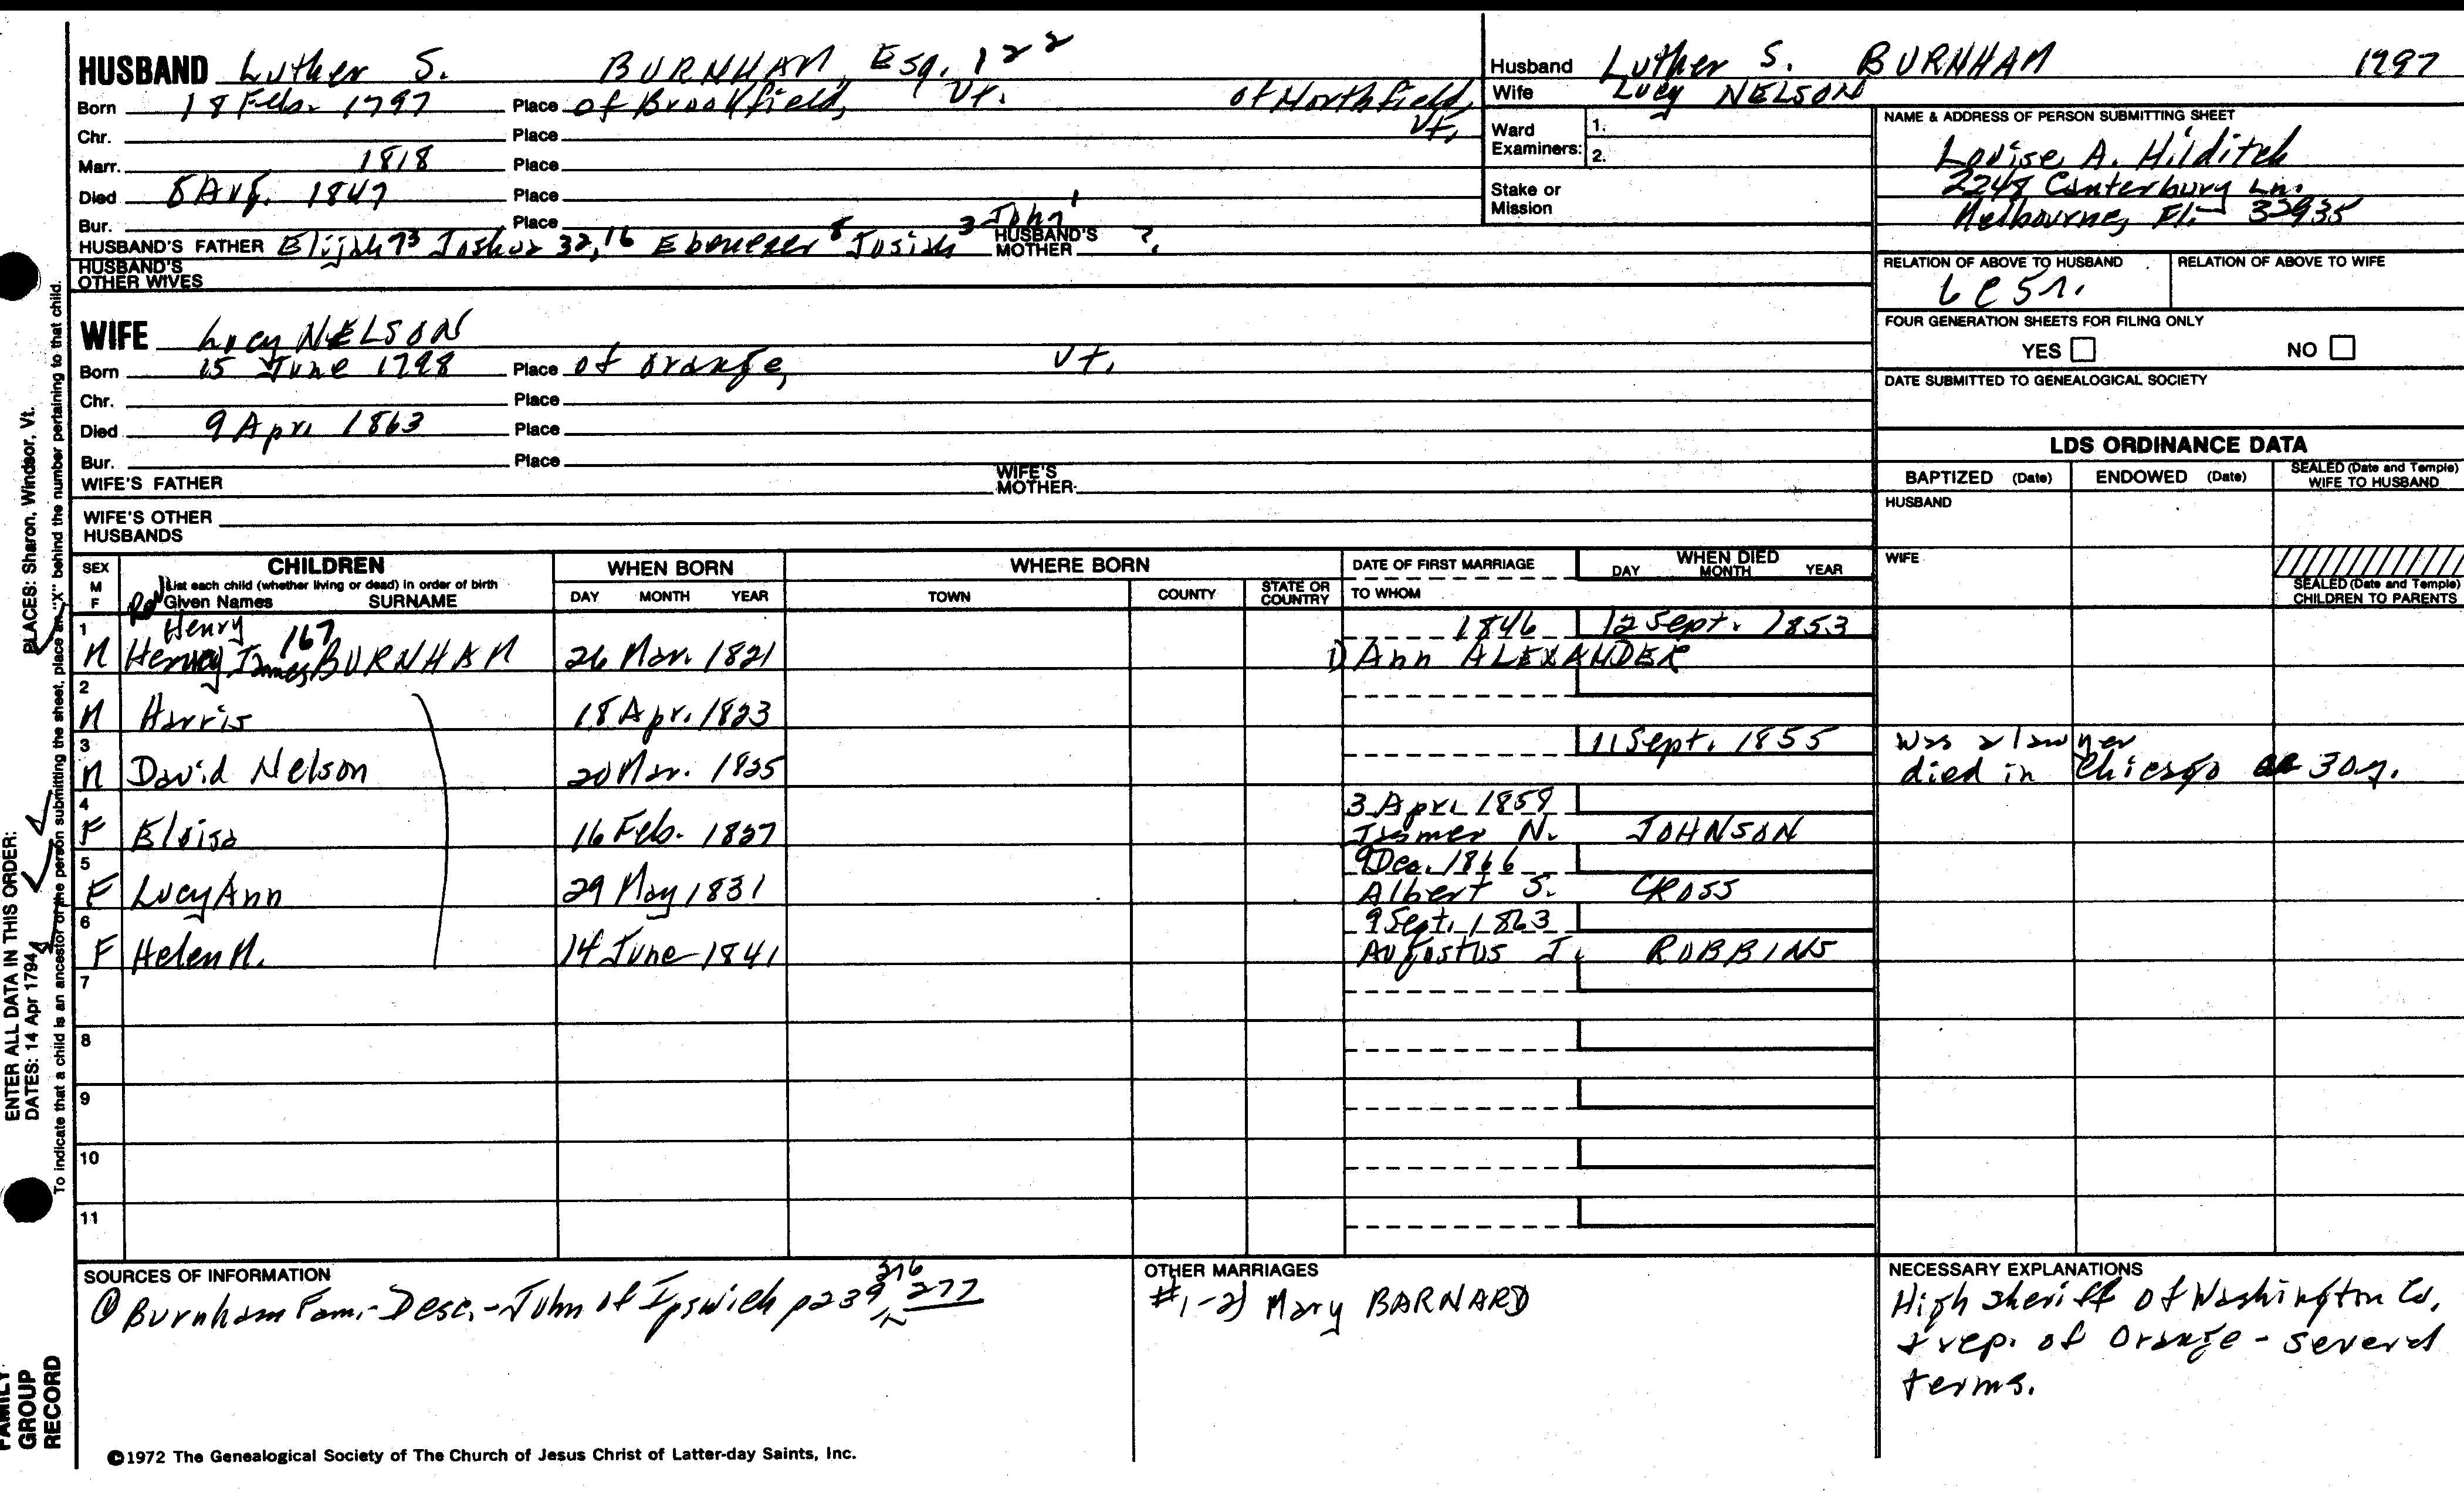 HUSBAND Luther S. BURNHAM, Esq. 122
Born 18 Feb. 1797 Place of Brookfield, Vt. of Northfield, Vt.
Chr. Place
Marr. 1818 Place
Died Aug. 1847 Place
Bur. Place
HUSBAND'S FATHER Elijah 73 Joshua 32, 16 Ebenezer 8 Josiah 3 John 1 HUSBAND'S MOTHER ?
HUSBAND'S OTHER WIVES
WIFE Lucy NELSON
Born 15 June 1798 Place of Orange, Vt.
Chr. Place
Died 9 Apr. 1863 Place
Bur. Place
WIFE'S FATHER WIFE'S MOTHER
WIFE'S OTHER HUSBANDS
Husband Luther S. BURNHAM 1797
Wife Lucy NELSON
Ward Examiners: 1. 2.
Stake or Mission
NAME & ADDRESS OF PERSON SUBMITTING SHEET
Louise A. Hilditch
2248 Canterbury Ln.
Melbourne, Fl. 32935
RELATION OF ABOVE TO HUSBAND RELATION OF ABOVE TO WIFE
FOUR GENERATION SHEETS FOR FILING ONLY
YES NO
DATE SUBMITTED TO GENEALOGICAL SOCIETY
LDS ORDINANCE DATA
BAPTIZED (Date) ENDOWED (Date) SEALED (Date and Temple) WIFE TO HUSBAND
HUSBAND
WIFE
SEALED (Date and Temple) CHILDREN TO PARENTS
SEX M F
CHILDREN
List each child (whether living or dead) in order of birth
Given Names SURNAME
WHEN BORN
DAY MONTH YEAR
WHERE BORN
TOWN COUNTY STATE OR COUNTRY
DATE OF FIRST MARRIAGE
TO WHOM
WHEN DIED
DAY MONTH YEAR
1 Henry 167 1846 12 Sept. 1853
M James BURNHAM 26 Mar. 1821 1) Ann ALEXANDER
2
M Harris 18 Apr. 1823
3 11 Sept. 1855 was a lawyer
M David Nelson 20 Mar. 1825 died in Chicago ae 30y.
4 3 Apr. 1859
F Eloisa 16 Feb. 1827 N. JOHNSON
5 9 Dec. 1866
F Lucy Ann 29 May 1831 Albert S. CROSS
6 9 Sept. 1863
F Helen M. 14 June 1841 Augustus J. ROBBINS
7
8
9
10
11
SOURCES OF INFORMATION
① Burnham Fam.-Desc.-John of Ipswich p239, 276 277
OTHER MARRIAGES
#1-2) Mary BARNARD
NECESSARY EXPLANATIONS
High sheriff of Washington Co.
& rep. of Orange - several
terms.
©1972 The Genealogical Society of The Church of Jesus Christ of Latter-day Saints, Inc.
PLACES: Sharon, Windsor, Vt.
ENTER ALL DATA IN THIS ORDER:
DATES: 14 Apr 1794
To indicate that a child is an ancestor of the person submitting the sheet, place an "X" behind the number pertaining to that child.
FAMILY
GROUP
RECORD